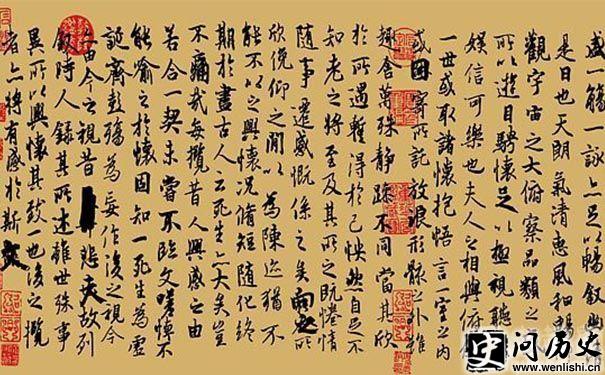 盛一觴一詠亦足以暢敘幽
是日也天朗氣清惠風和暢
觀宇宙之大俯察品類之
所以遊目騁懷足以極視聽
娛信可樂也夫人之相與俯仰
一世或取諸懷抱悟言一室之內
或因寄所託放浪形骸之外雖
趣舍萬殊靜躁不同當其欣
於所遇暫得於己怏然自足不
知老之將至及其所之既惓情
隨事遷感慨係之矣向之所
欣俛仰之閒以為陳迹猶不
能不以之興懷況脩短隨化終
期於盡古人云死生亦大矣豈
不痛哉每攬昔人興感之由
若合一契未嘗不臨文嗟悼不
能喻之於懷固知一死生為虛
誕齊彭殤為妄作後之視今
亦由今之視昔悲夫故列
敘時人錄其所述雖世殊事
異所以興懷其致一也後之攬
者亦將有感於斯文
史 问历史
www.wenlishi.cn